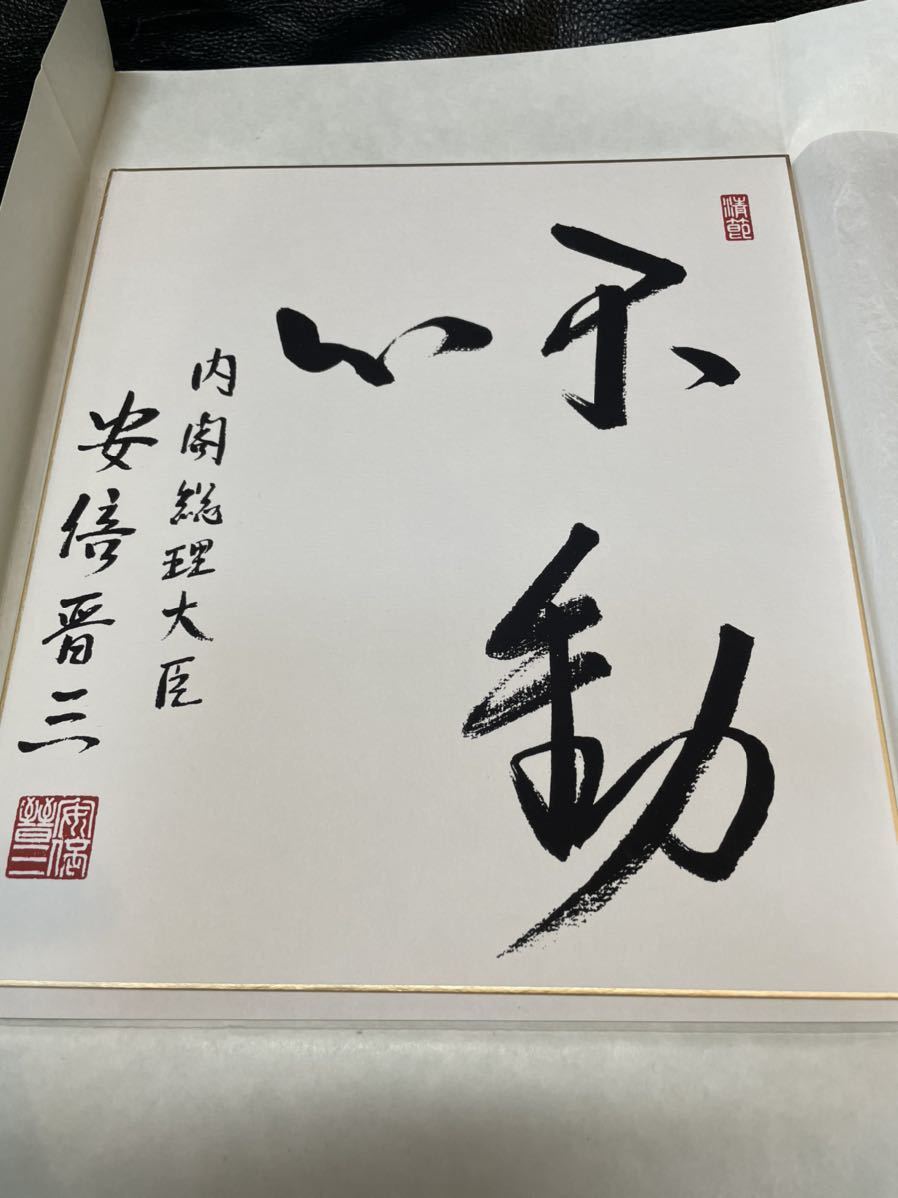 清節
不動
心
内閣総理大臣
安倍晋三
安倍晋三